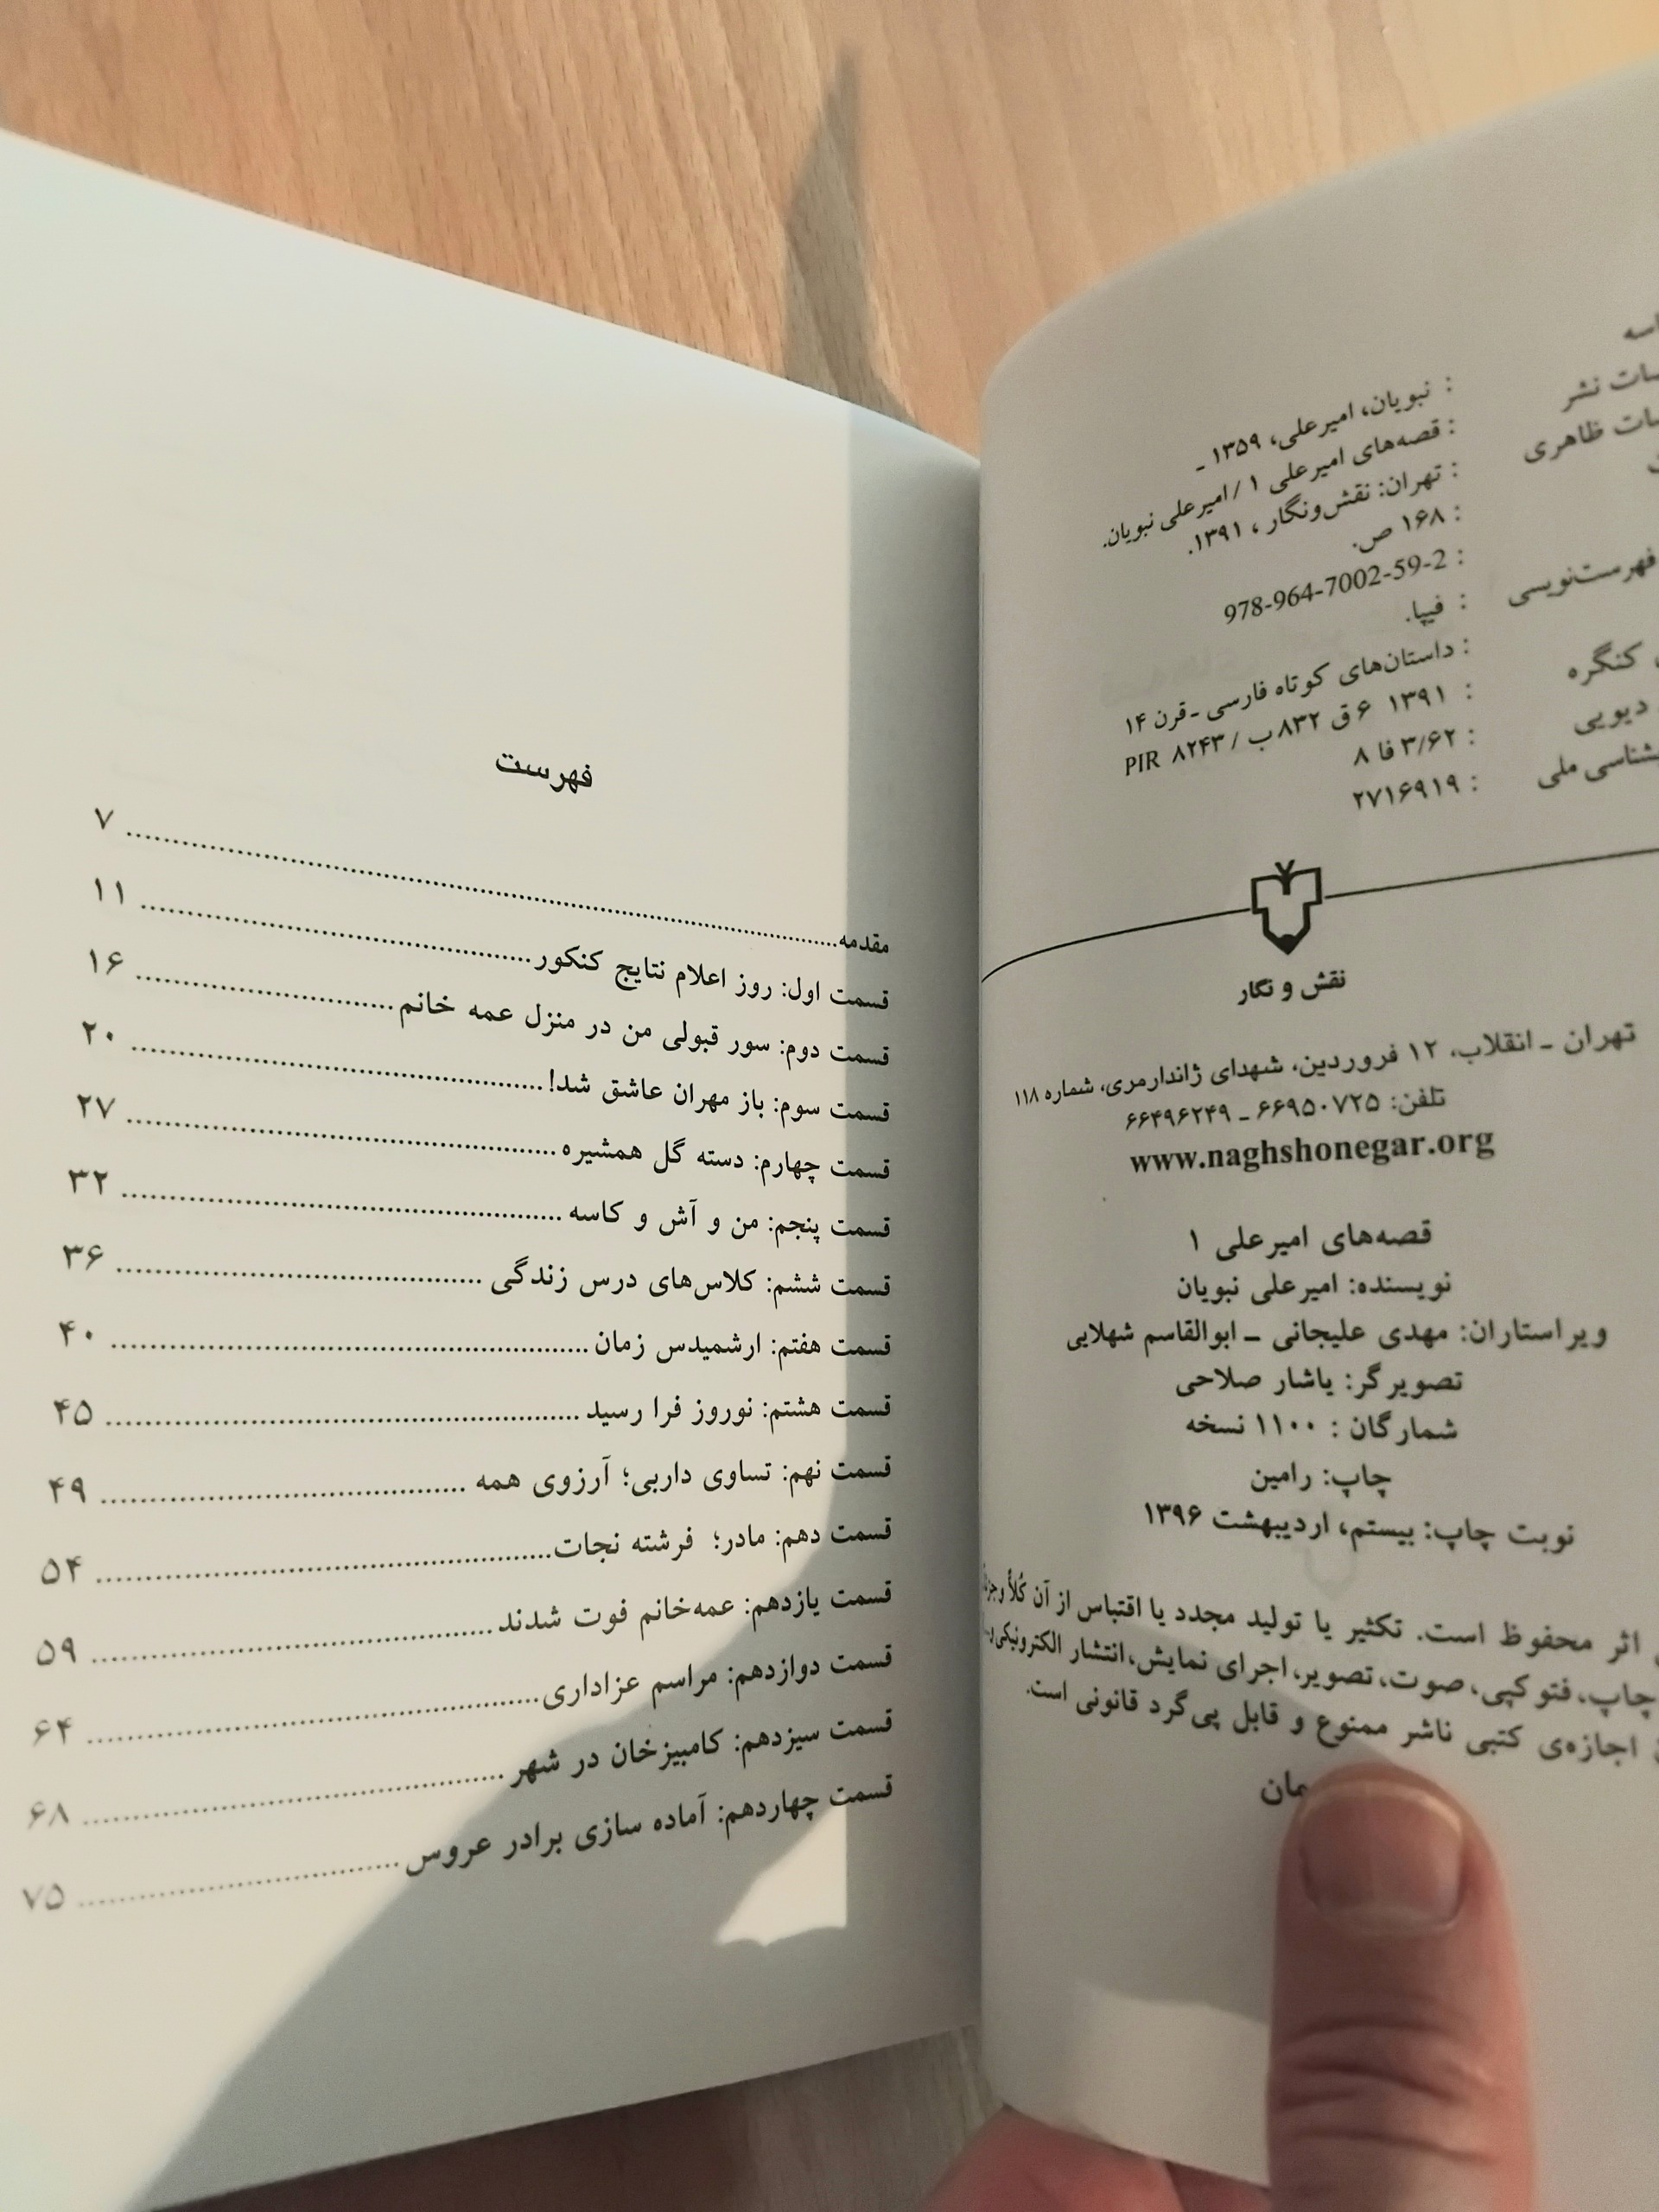 نشر
ظاهری
فهرست‌نویسی
کنگره
دیویی
ملی
: نبویان، امیرعلی، ۱۳۵۹ ـ
: قصه‌های امیرعلی ۱ / امیرعلی نبویان.
: تهران: نقش‌ونگار، ۱۳۹۱.
: ۱۶۸ ص.
: 978-964-7002-59-2
: فیپا.
: داستان‌های کوتاه فارسی ـ قرن ۱۴
: ۱۳۹۱ ۶ق ۸۳۲ب / PIR ۸۲۴۳
: ۳/۶۲ فا ۸
: ۲۷۱۶۹۱۹
نقش و نگار
تهران ـ انقلاب، ۱۲ فروردین، شهدای ژاندارمری، شماره ۱۱۸
تلفن: ۶۶۹۵۰۷۲۵ ـ ۶۶۴۹۶۲۴۹
www.naghshonegar.org
قصه‌های امیرعلی ۱
نویسنده: امیرعلی نبویان
ویراستاران: مهدی علیجانی ـ ابوالقاسم شهلایی
تصویرگر: یاشار صلاحی
شمارگان : ۱۱۰۰ نسخه
چاپ: رامین
نوبت چاپ: بیستم، اردیبهشت ۱۳۹۶
اثر محفوظ است. تکثیر یا تولید مجدد یا اقتباس از آن کُلاً و
چاپ، فتوکپی، صوت، تصویر، اجرای نمایش، انتشار الکترونیکی و...
اجازه‌ی کتبی ناشر ممنوع و قابل پی‌گرد قانونی است.
فهرست
مقدمه.......... ۷
قسمت اول: روز اعلام نتایج کنکور.......... ۱۱
قسمت دوم: سور قبولی من در منزل عمه خانم.......... ۱۶
قسمت سوم: باز مهران عاشق شد!.......... ۲۰
قسمت چهارم: دسته گل همشیره.......... ۲۷
قسمت پنجم: من و آش و کاسه.......... ۳۲
قسمت ششم: کلاس‌های درس زندگی.......... ۳۶
قسمت هفتم: ارشمیدس زمان.......... ۴۰
قسمت هشتم: نوروز فرا رسید.......... ۴۵
قسمت نهم: تساوی داربی؛ آرزوی همه.......... ۴۹
قسمت دهم: مادر؛ فرشته نجات.......... ۵۴
قسمت یازدهم: عمه‌خانم فوت شدند.......... ۵۹
قسمت دوازدهم: مراسم عزاداری.......... ۶۴
قسمت سیزدهم: کامبیزخان در شهر.......... ۶۸
قسمت چهاردهم: آماده سازی برادر عروس.......... ۷۵